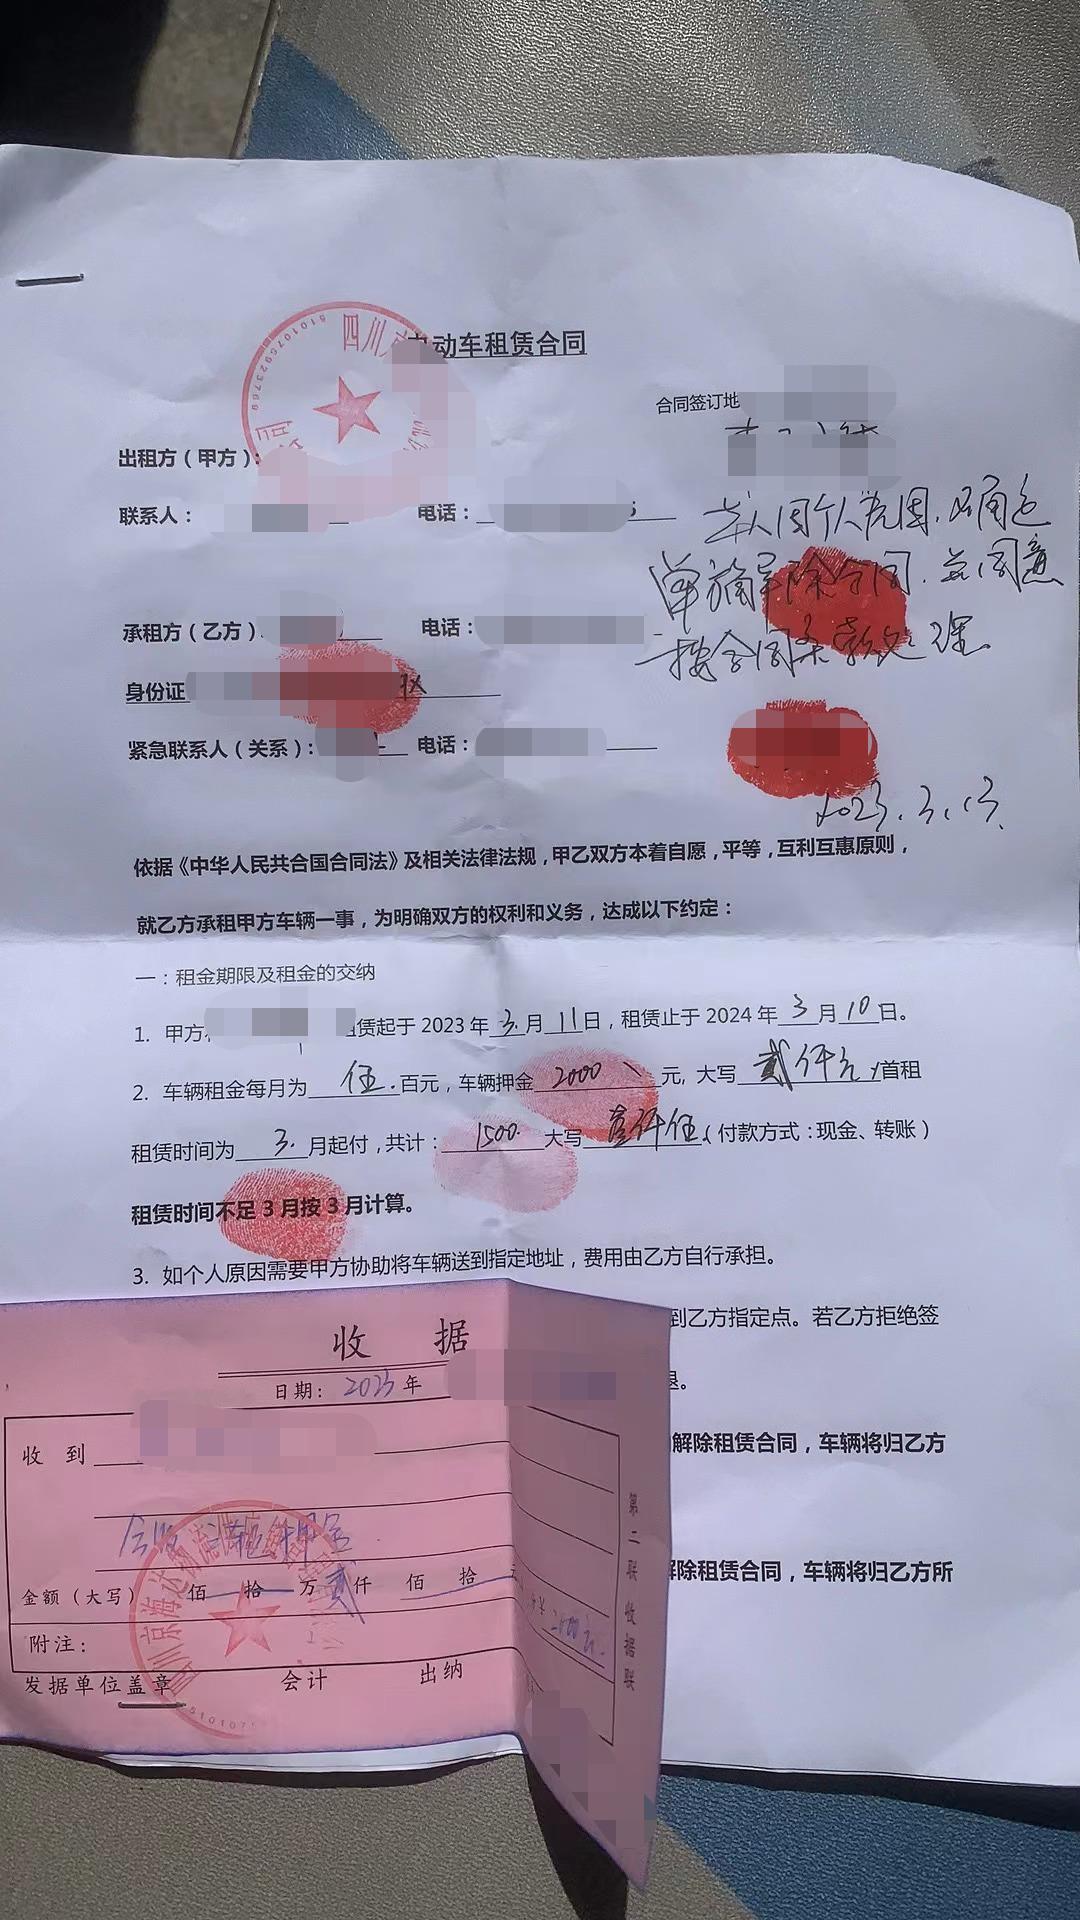 四川
5101075923769
动车租赁合同
合同签订地
出租方（甲方）:
联系人：
电话：
本人因个人原因，
单方解除合同，并同意
按合同条款处理
承租方（乙方）
电话：
身份证
紧急联系人（关系）：
电话：
2023.3.13
依据《中华人民共合国合同法》及相关法律法规，甲乙双方本着自愿，平等，互利互惠原则，
就乙方承租甲方车辆一事，为明确双方的权利和义务，达成以下约定：
一：租金期限及租金的交纳
1. 甲方 租赁起于 2023 年 3 月 11 日，租赁止于 2024 年 3 月 10 日。
2. 车辆租金每月为 伍 百元，车辆押金 2000 元, 大写 贰仟元 /首租
租赁时间为 3 月起付，共计： 1500 大写 壹仟伍 （付款方式：现金、转账）
租赁时间不足 3 月按 3 月计算。
3. 如个人原因需要甲方协助将车辆送到指定地址，费用由乙方自行承担。
到乙方指定点。若乙方拒绝签
退。
解除租赁合同，车辆将归乙方
解除租赁合同，车辆将归乙方所
收 据
日期： 2023 年
收 到
押金
金额（大写） 佰 拾 万 贰 仟 佰 拾
附注：
发据单位盖章 会计 出纳
第二联 收据联
四川京海达物流
510107